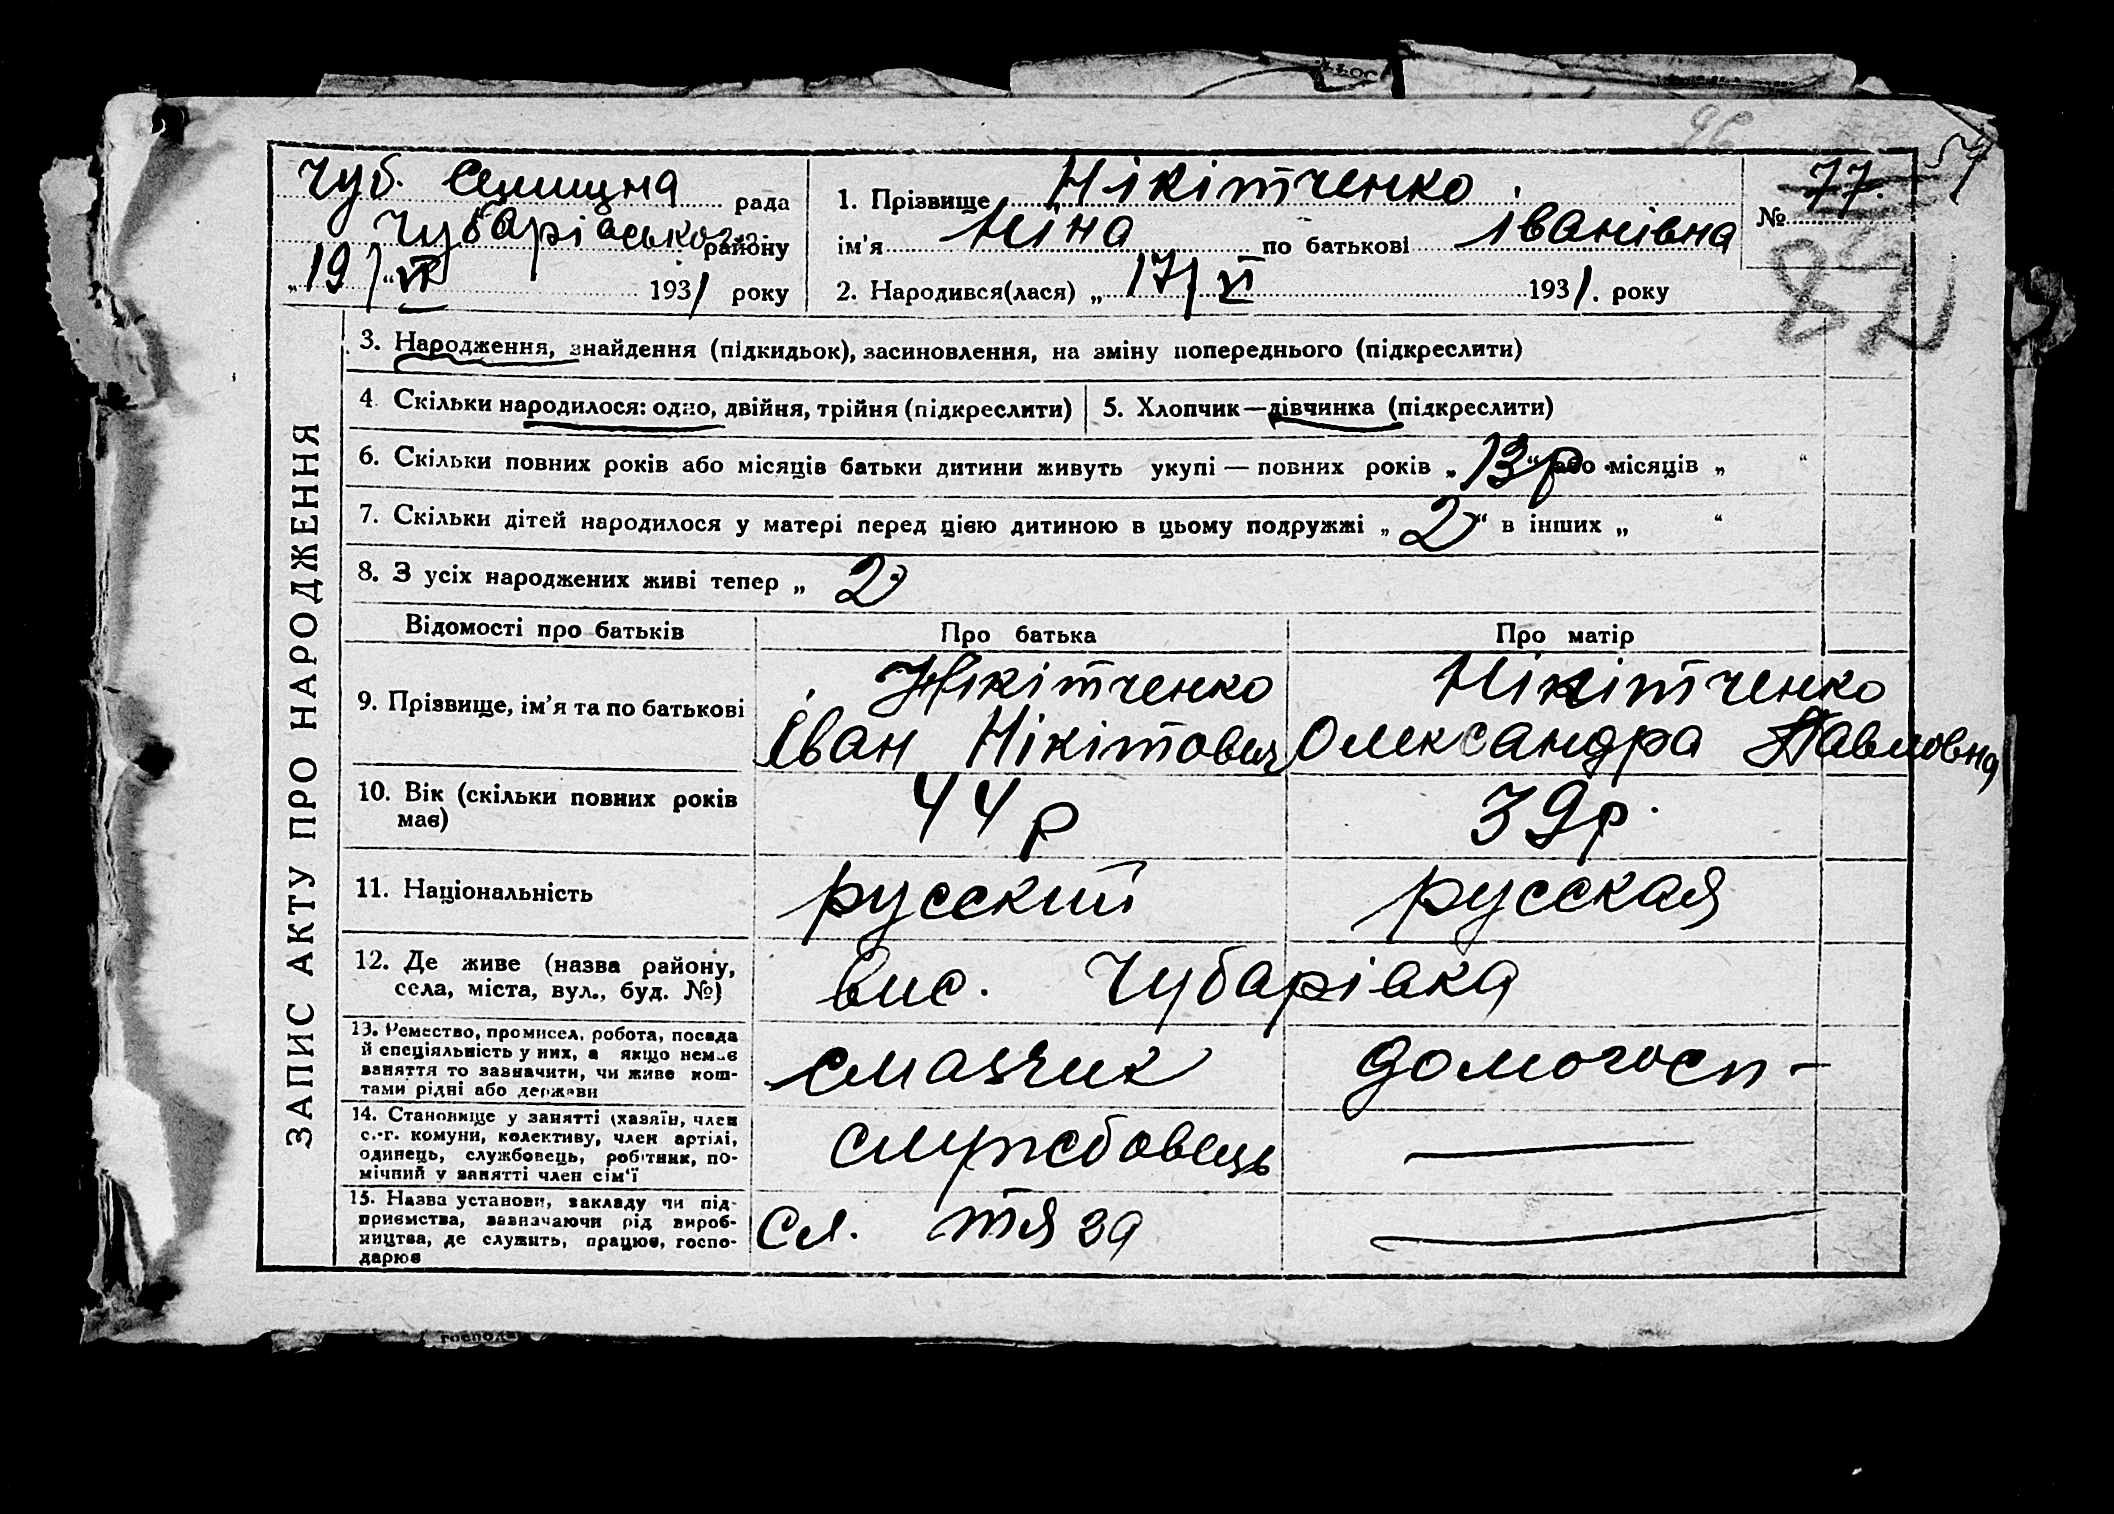 чуб. Селищна рада
Чубарівського району
„19/“ VI 1931 року
1. Прізвище Нікітченко
ім'я Ніна по батькові Іванівна
2. Народився(лася) „17/VI 1931. року
№ 77.
82
ЗАПИС АКТУ ПРО НАРОДЖЕННЯ
3. Народження, знайдення (підкидьок), засиновлення, на зміну попереднього (підкреслити)
4. Скільки народилося: одно, двійня, трійня (підкреслити)
5. Хлопчик—дівчинка (підкреслити)
6. Скільки повних років або місяців батьки дитини живуть укупі — повних років „13 р“ або місяців „ “
7. Скільки дітей народилося у матері перед цією дитиною в цьому подружжі „2“ в інших „ “
8. З усіх народжених живі тепер „2
Відомості про батьків
Про батька
Про матір
9. Прізвище, ім'я та по батькові
Нікітченко
Іван Нікітович
Нікітченко
Олександра Павловна
10. Вік (скільки повних років
має)
44 р
39 р.
11. Національність
русский
русская
12. Де живе (назва району,
села, міста, вул., буд. №)
вис. Чубарівка
13. Ремество, промисел, робота, посада
й спеціяльність у них, а якщо немає
заняття то зазначити, чи живе кош-
тами рідні або держави
смазчик
домогосп-
14. Становище у занятті (хазяїн, член
с.-г. комуни, колективу, член артілі,
одинець, службовець, робітник, по-
мічний у занятті член сім'ї
службовець
15. Назва установи, закладу чи під-
приємства, зазначаючи рід вироб-
ництва, де служить, працює, госпо-
дарює
Ст.
господа